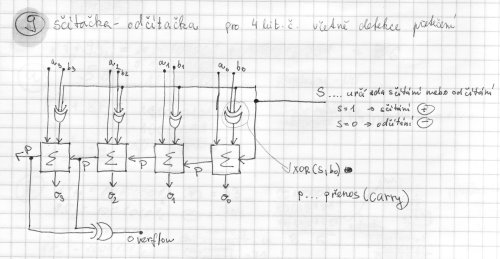 9 sčítačka - odčítačka pro 4 bit. č. včetně detekce přetečení
a3 b3 a2 b2 a1 b1 a0 b0
S .... určí zda sčítání nebo odčítání
s=1 → sčítání +
s=0 → odčítání −
P Σ P Σ P Σ P Σ
XOR(s,b0)
σ3 σ2 σ1 σ0
p... přenos (carry)
overflow